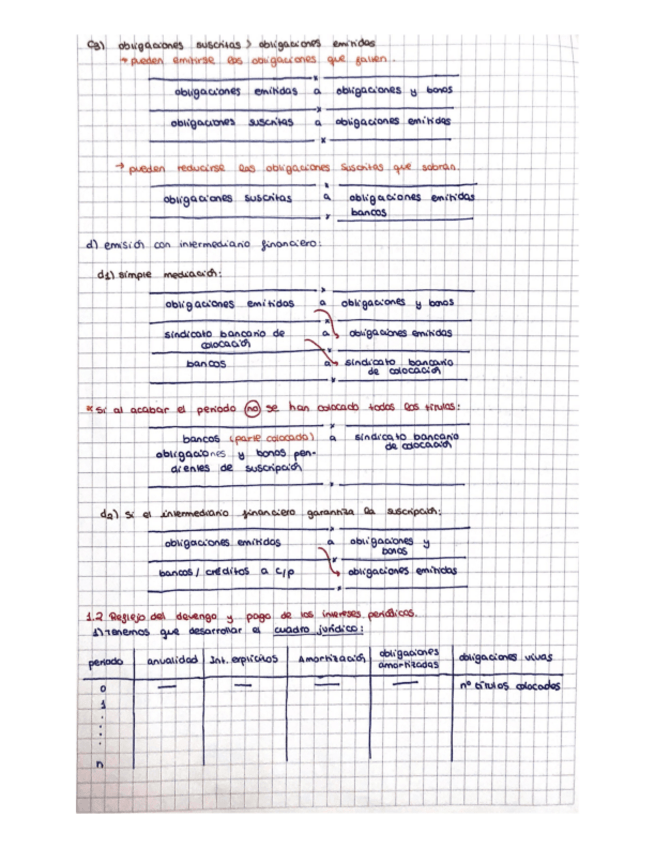 c3) obligaciones suscritas > obligaciones emitidas
→ pueden emitirse las obligaciones que falten.
obligaciones emitidas a obligaciones y bonos
obligaciones suscritas a obligaciones emitidas
→ pueden reducirse las obligaciones suscritas que sobran.
obligaciones suscritas a obligaciones emitidas
bancos
d) emisión con intermediario financiero:
d1) simple mediación:
obligaciones emitidas a obligaciones y bonos
sindicato bancario de a obligaciones emitidas
colocación
bancos a sindicato bancario
de colocación
* si al acabar el periodo no se han colocado todos los títulos:
bancos (parte colocada) a sindicato bancario
de colocación
obligaciones y bonos pen-
dientes de suscripción
d2) si el intermediario financiero garantiza la suscripción:
obligaciones emitidas a obligaciones y
bonos
bancos / créditos a c/p obligaciones emitidas
1.2 Reflejo del devengo y pago de los intereses periódicos.
1) Tenemos que desarrollar el cuadro jurídico:
periodo anualidad Int. explícitos Amortización obligaciones amortizadas obligaciones vivas
0 — — — — nº títulos colocados
1
.
.
.
.
n